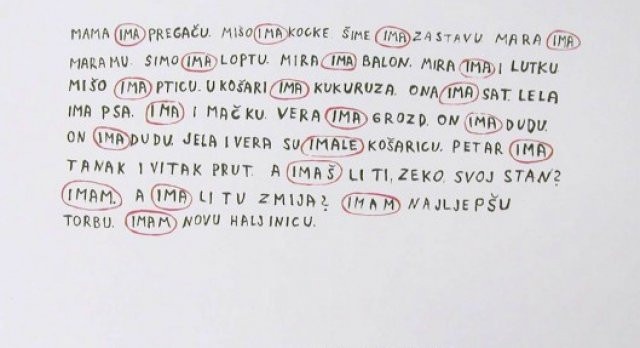 MAMA IMA PREGAČU. MIŠO IMA KOCKE ŠIME IMA ZASTAVU MARA IMA
MARAMU. SIMO IMA LOPTU. MIRA IMA BALON. MIRA IMA I LUTKU
MIŠO IMA PTICU. U KOŠARI IMA KUKURUZA. ONA IMA SAT. LELA
IMA PSA. IMA I MAČKU. VERA IMA GROZD. ON IMA DUDU.
ON IMA DUDU. JELA I VERA SU IMALE KOŠARICU. PETAR IMA
TANAK I VITAK PRUT. A IMAŠ LI TI, ZEKO, SVOJ STAN?
IMAM. A IMA LI TU ZMIJA? IMAM NAJLJEPŠU
TORBU. IMAM NOVU HALJINICU.